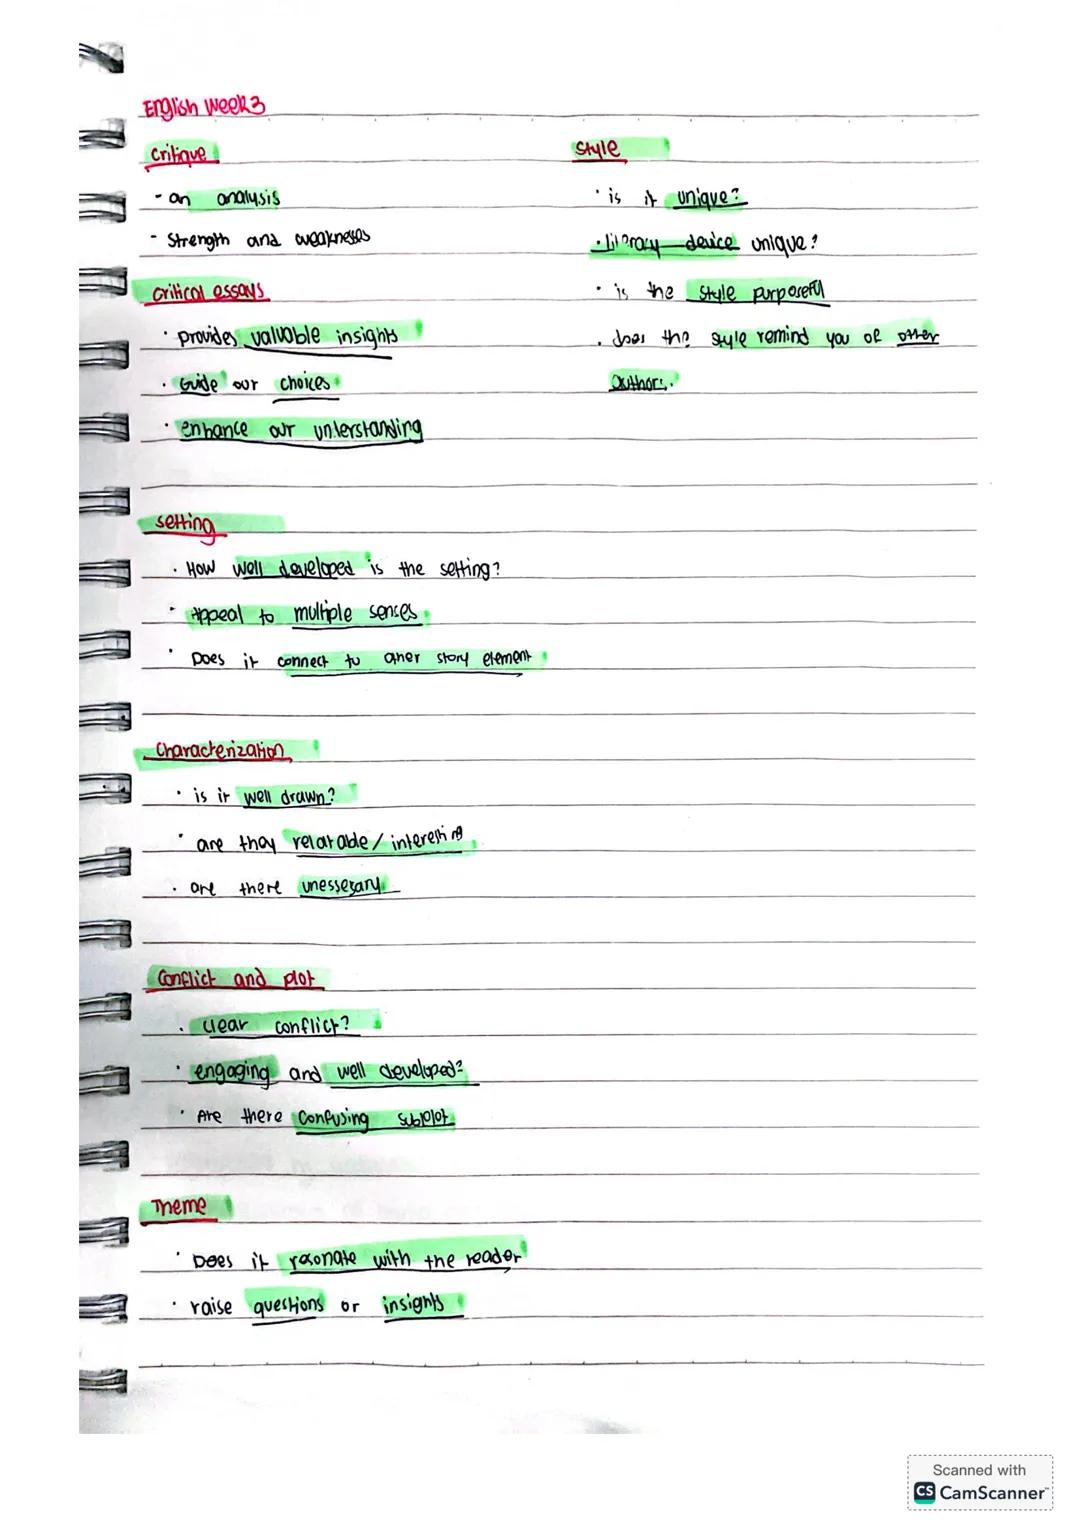 English Week 3
Critique
- an analysis
- Strength and weaknesses
Critical essays
· Provides valuable insights
· Guide our choices
· enhance our understanding
Setting
· How well developed is the setting?
· Appeal to multiple senses
· Does it connect to other story element
Characterization
· is it well drawn?
· are they relatable/interesting
· are there unessesary
Conflict and plot
· clear conflict?
· engaging and well developed?
· Are there confusing subplot
Theme
· Does it resonate with the reader
· raise questions or insights
Style
· is it unique?
· literary device unique?
· is the style purposeful
· does the style remind you of other
authors.
Scanned with
CS CamScanner